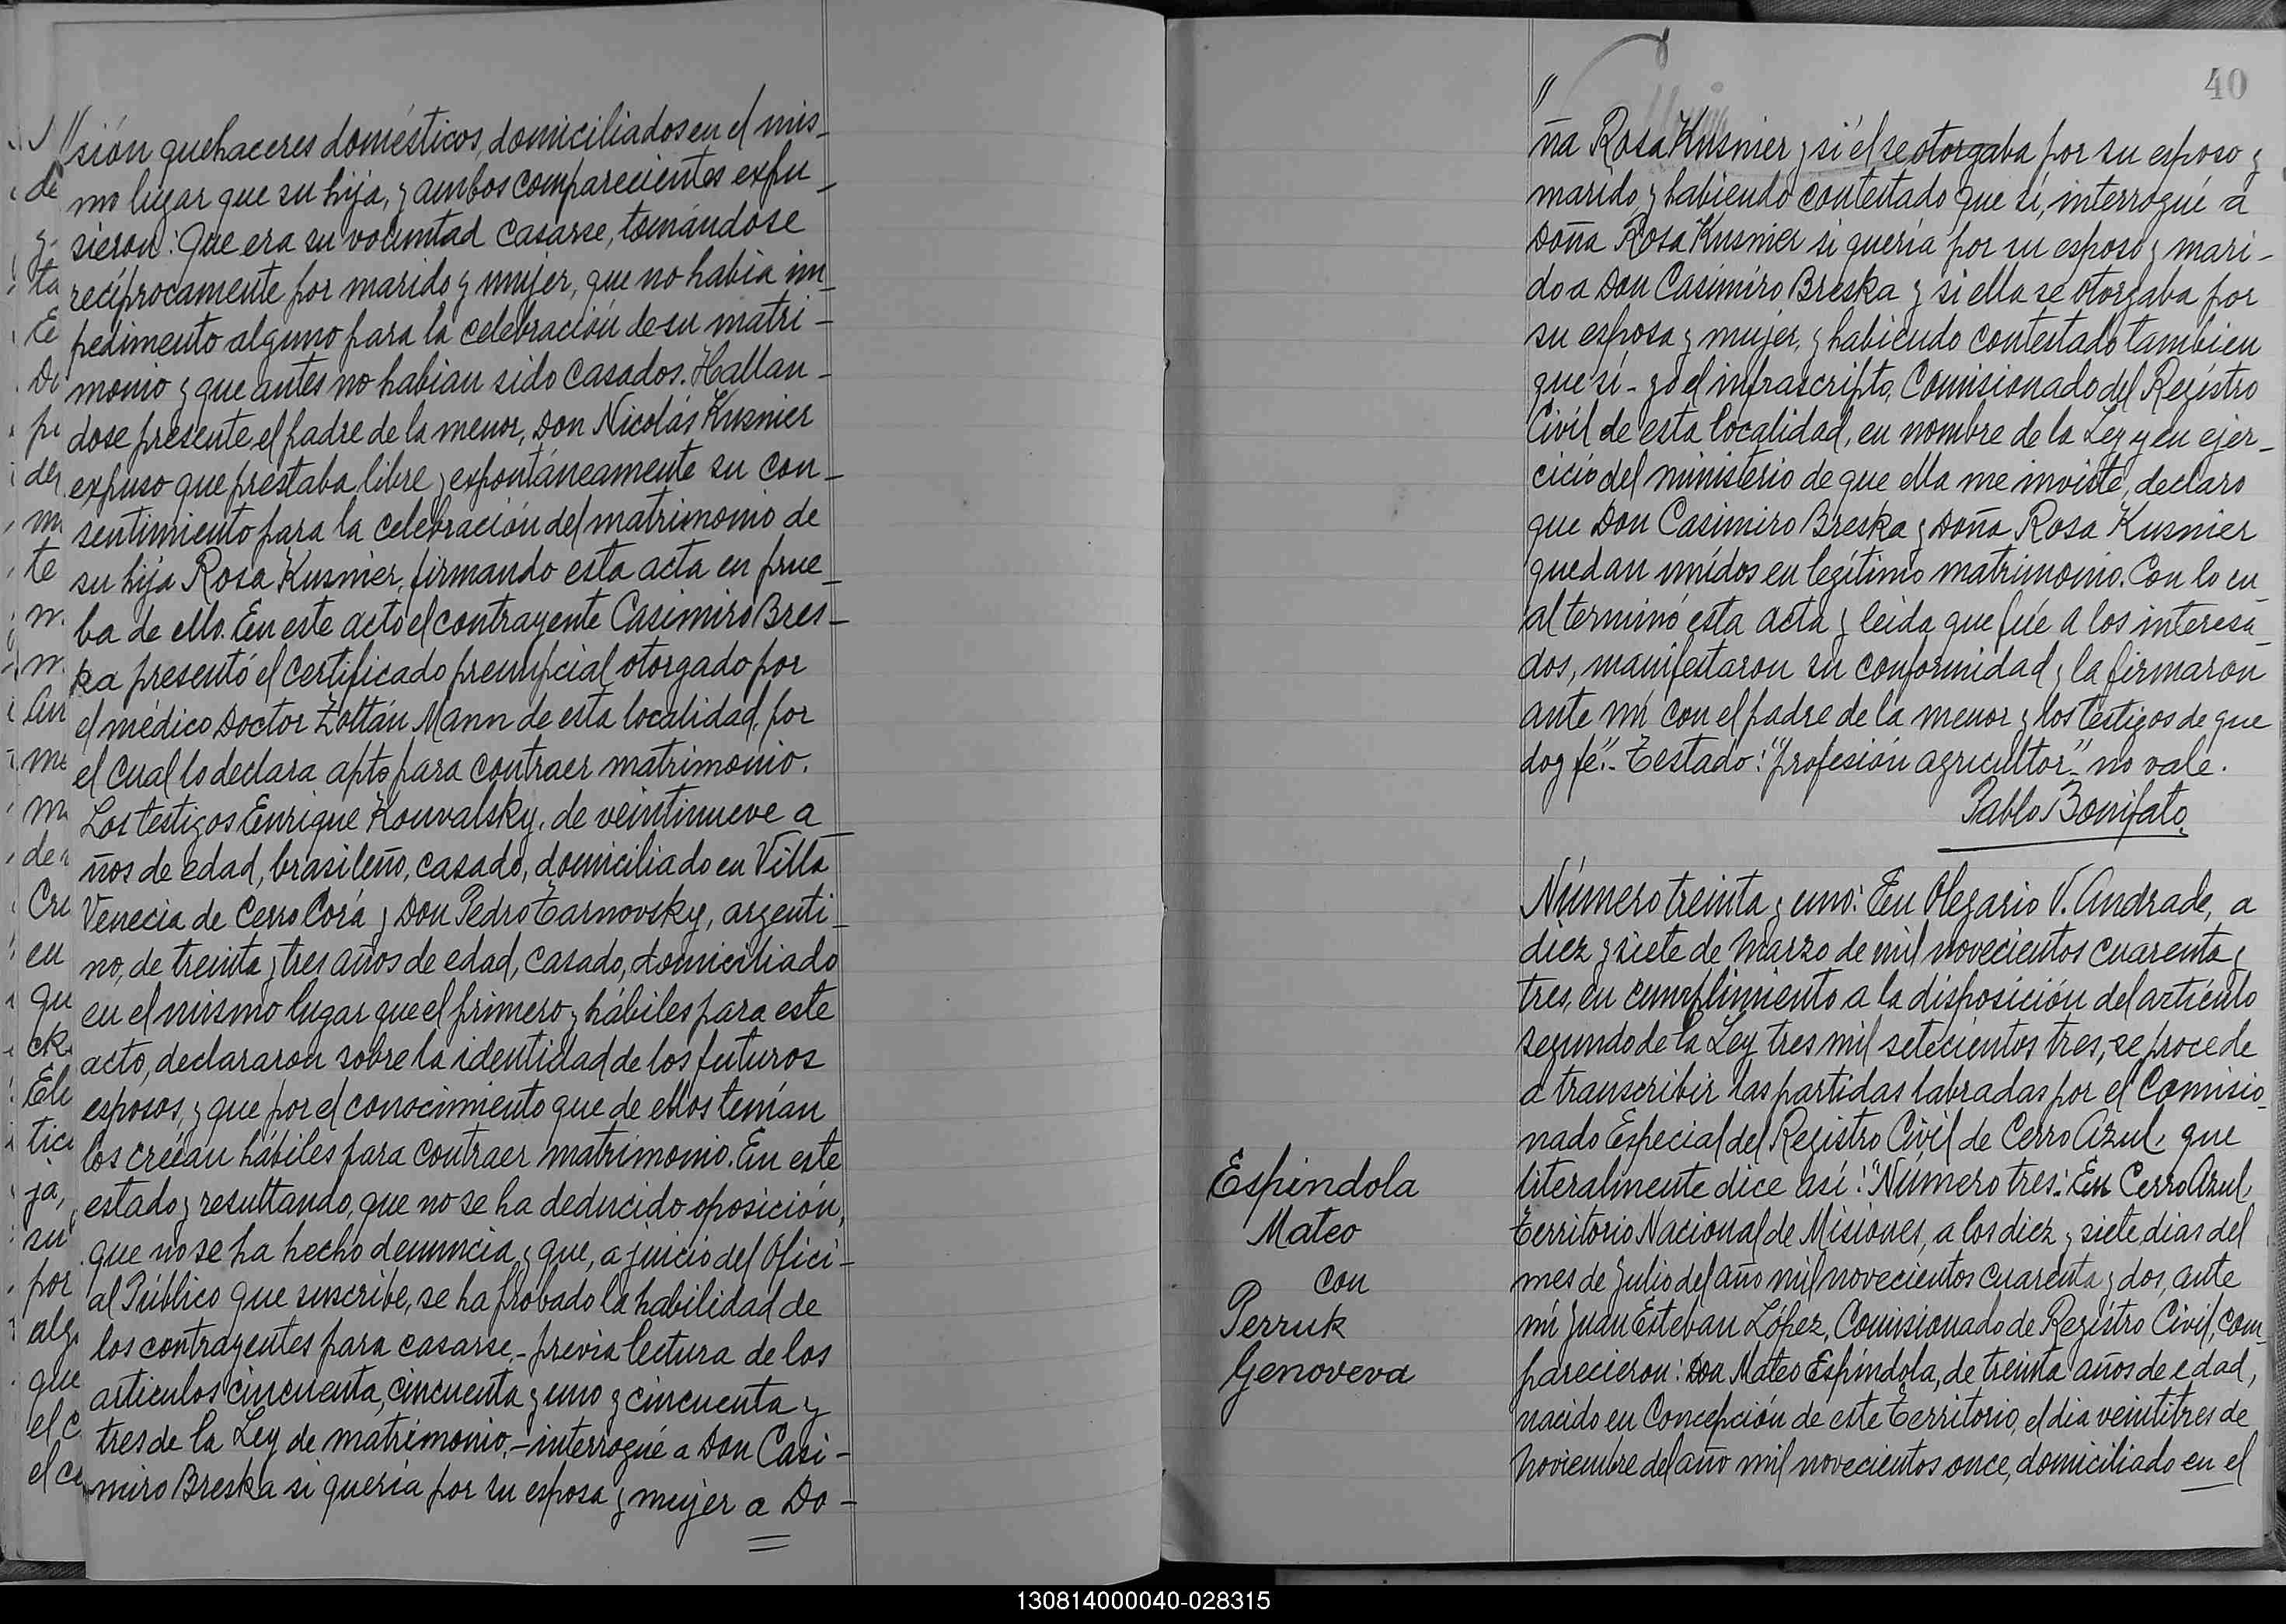 "sión quehaceres domésticos, domiciliados en el mis-
mo lugar que su hija, y ambos comparecientes expu-
sieron: Que era su voluntad casarse, tomándose
recíprocamente por marido y mujer, que no había im-
pedimento alguno para la celebración de su matri-
monio y que antes no habian sido casados. Hallan-
dose presente el padre de la menor, Don Nicolás Kusnier
expuso que prestaba libre y espontáneamente su con-
sentimiento para la celebración del matrimonio de
su hija Rosa Kusnier, firmando esta acta en prue-
ba de ello. En este acto el contrayente Casimiro Bres-
ka presentó el certificado prenupcial otorgado por
el médico Doctor Zoltán Mann de esta localidad, por
el cual lo declara apto para contraer matrimonio.
Los testigos Enrique Kouvalsky, de veintinueve a-
ños de edad, brasileño, casado, domiciliado en Villa
Venecia de Cerro Corá y Don Pedro Tarnovsky, argenti-
no, de treinta y tres años de edad, casado, domiciliado
en el mismo lugar que el primero y hábiles para este
acto, declararon sobre la identidad de los futuros
esposos, y que por el conocimiento que de ellos tenían
los creían hábiles para contraer matrimonio. En este
estado y resultando, que no se ha deducido oposición,
que no se ha hecho denuncia y que, a juicio del Ofici-
al Público que suscribe, se ha probado la habilidad de
los contrayentes para casarse,- previa lectura de los
articulos cincuenta, cincuenta y uno y cincuenta y
tres de la Ley de matrimonio,- interrogué a Don Casi-
miro Breska si quería por su esposa y mujer a Do-
40
"ña Rosa Kusnier y si él se otorgaba por su esposo y
marido y habiendo contestado que sí, interrogué a
Doña Rosa Kusnier si quería por su esposo y mari-
do a Don Casimiro Breska y si ella se otorgaba por
su esposa y mujer, y habiendo contestado tambien
que sí - yo el infrascripto, Comisionado del Registro
Civil de esta localidad, en nombre de la Ley y en ejer-
cicio del ministerio de que ella me inviste, declaro
que Don Casimiro Breska y Doña Rosa Kusnier
quedan unidos en legítimo matrimonio. Con lo cu-
al terminó esta acta y leida que fué a los interesa-
dos, manifestaron su conformidad y la firmaron
ante mí con el padre de la menor y los testigos de que
doy fe".- Testado: "profesión agricultor".- no vale.
Pablo Bonifato
Número treinta y uno: En Olegario V. Andrade, a
diez y siete de Marzo de mil novecientos cuarenta y
tres, en cumplimiento a la disposición del artículo
segundo de la Ley tres mil setecientos tres, se procede
a transcribir las partidas labradas por el Comisio-
nado Especial del Registro Civil de Cerro Azul, que
literalmente dice así: "Número tres: En Cerro Azul,
Territorio Nacional de Misiones, a los diez y siete dias del
mes de Julio del año mil novecientos cuarenta y dos, ante
mí Juan Esteban López, Comisionado de Registro Civil, com-
parecieron: Don Mateo Espíndola, de treinta años de edad,
nacido en Concepción de este Territorio, el dia veintitres de
Noviembre del año mil novecientos once, domiciliado en el
Espindola
Mateo
con
Perruk
Genoveva
130814000040-028315